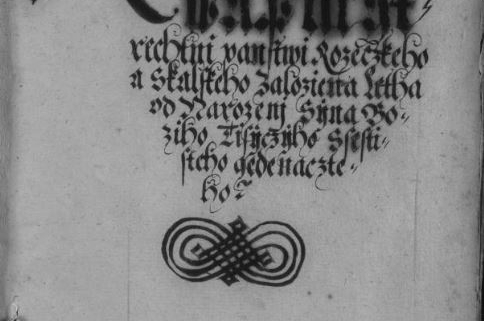 rechtni panstwi Kozeczkeho
a Skalskeho Zaloziena Letha
od Narozenj Syna Bo=
ziho Tisyczyho Ssesti=
steho gedenaczte=
ho